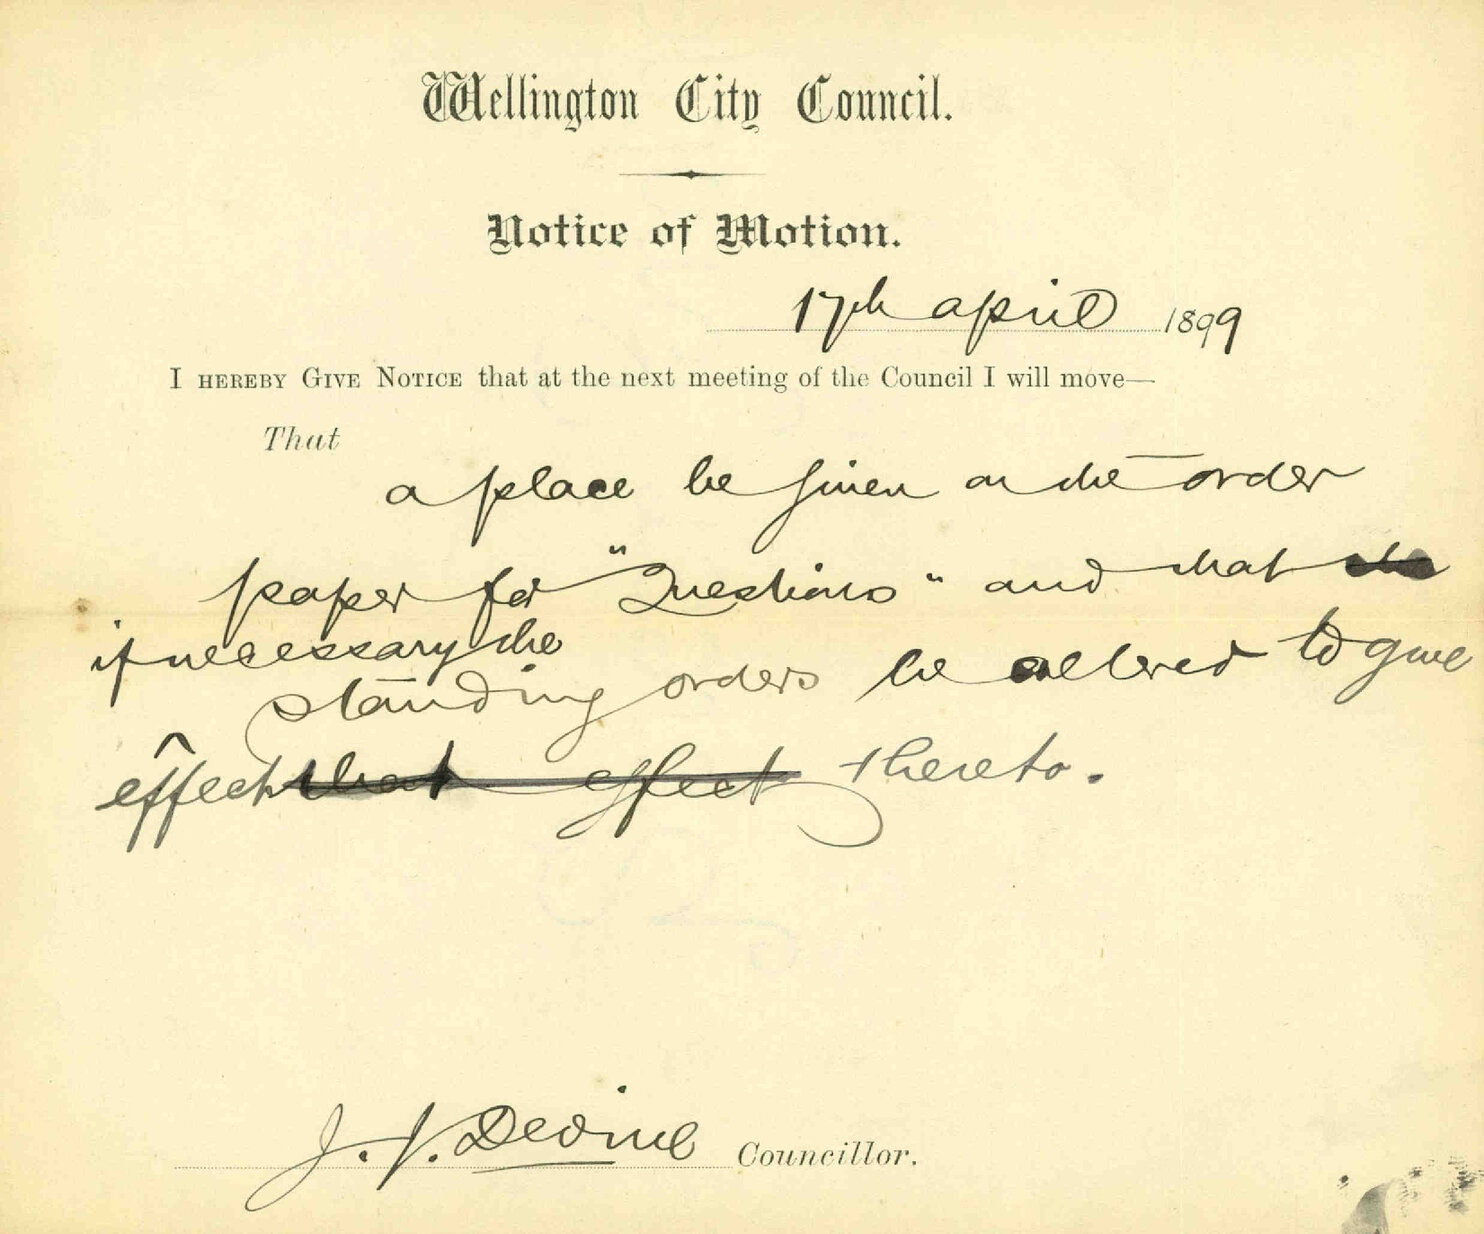 Wellington City Council.
Notice of Motion.
17th april 1899
I HEREBY GIVE NOTICE that at the next meeting of the Council I will move—
That
a place be given on the order
paper for "Questions" and that the
if necessary the
standing orders be altered to give
effect that effect thereto.
J. J. Devine Councillor.